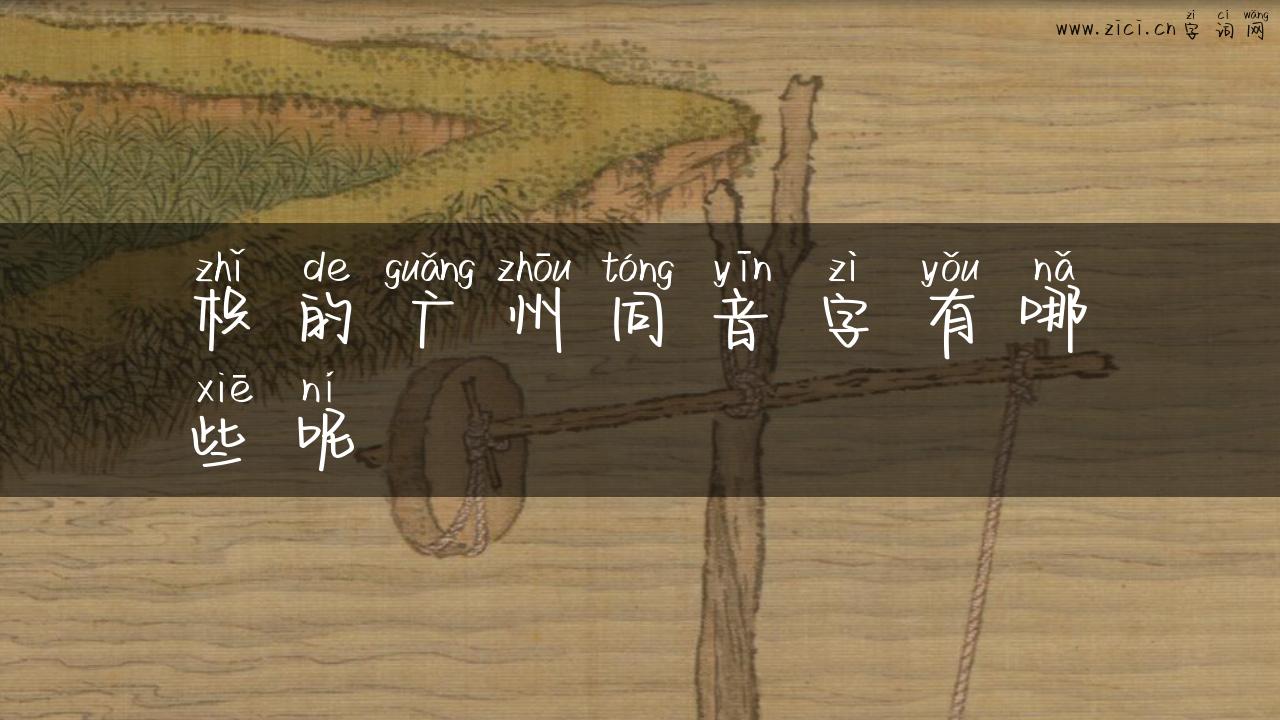 zì cí wǎng
www.zici.cn 字 词 网
zhǐ de guǎng zhōu tóng yīn zì yǒu nǎ
枳 的 广 州 同 音 字 有 哪
xiē ní
些 呢